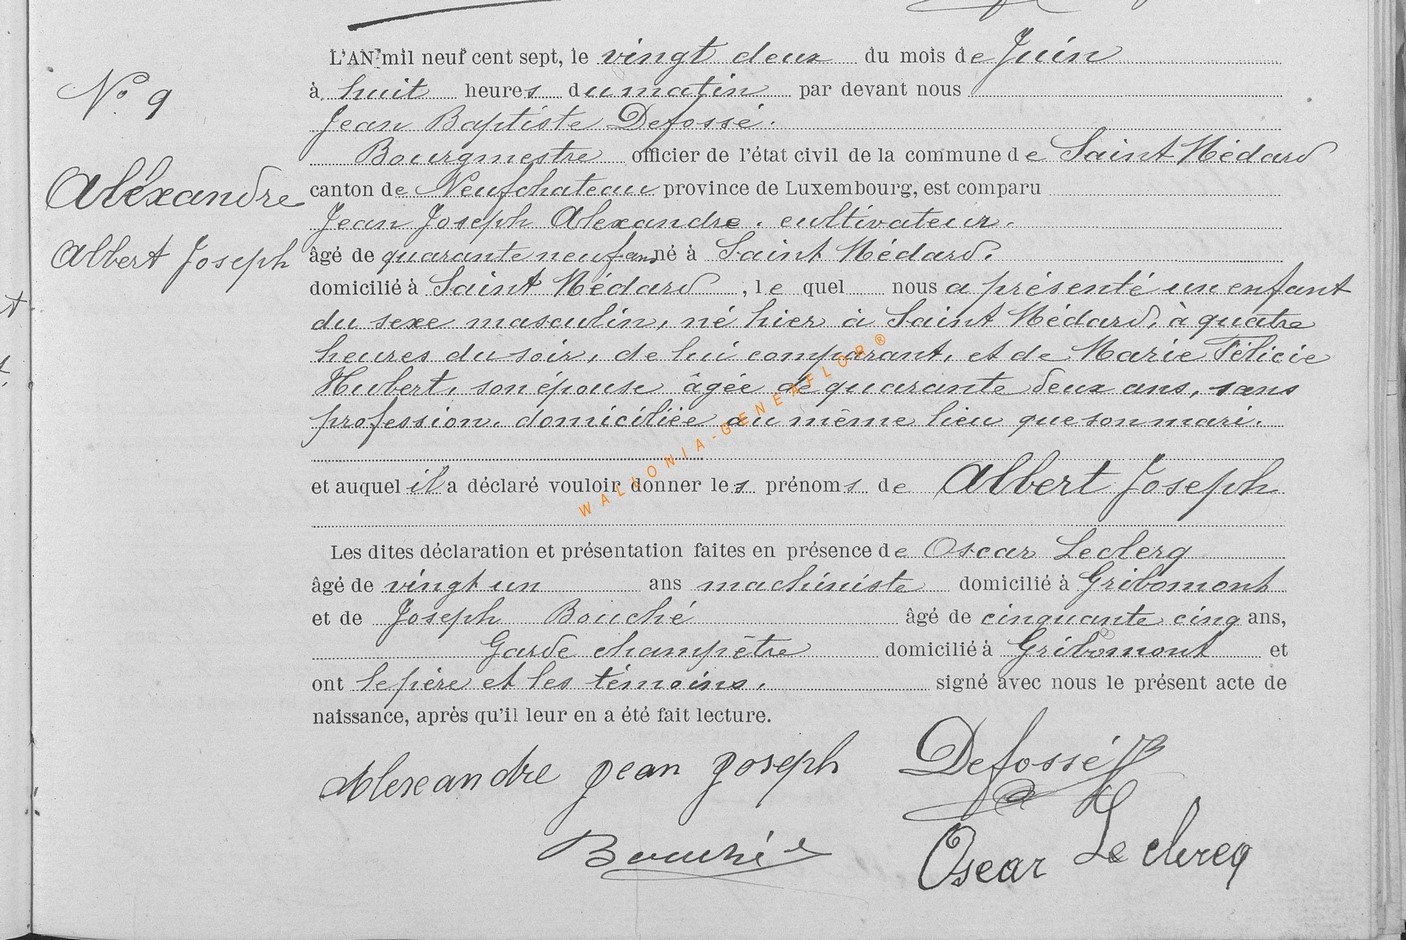 N° 9
Alexandre
Albert Joseph
L'AN mil neuf cent sept, le vingt deux du mois de Juin
à huit heures du matin par devant nous
Jean Baptiste Defossé.
Bourgmestre officier de l'état civil de la commune de Saint Médard
canton de Neufchateau province de Luxembourg, est comparu
Jean Joseph Alexandre, cultivateur.
âgé de quarante neuf ans né à Saint Médard.
domicilié à Saint Médard, le quel nous a présenté un enfant
du sexe masculin, né hier à Saint Médard, à quatre
heures du soir, de lui comparant, et de Marie Félicie
Hubert, son épouse âgée de quarante deux ans, sans
profession, domiciliée au même lieu que son mari.
et auquel il a déclaré vouloir donner les prénoms de Albert Joseph
Les dites déclaration et présentation faites en présence de Oscar Leclerq
âgé de vingt un ans machiniste domicilié à Gribomont
et de Joseph Bouché âgé de cinquante cinq ans,
Garde champêtre domicilié à Gribomont et
ont le père et les témoins. signé avec nous le présent acte de
naissance, après qu'il leur en a été fait lecture.
Alexandre Jean Joseph Defossé JB
Bouché Oscar Leclercq
WALLONIA-GENEAFLOR®